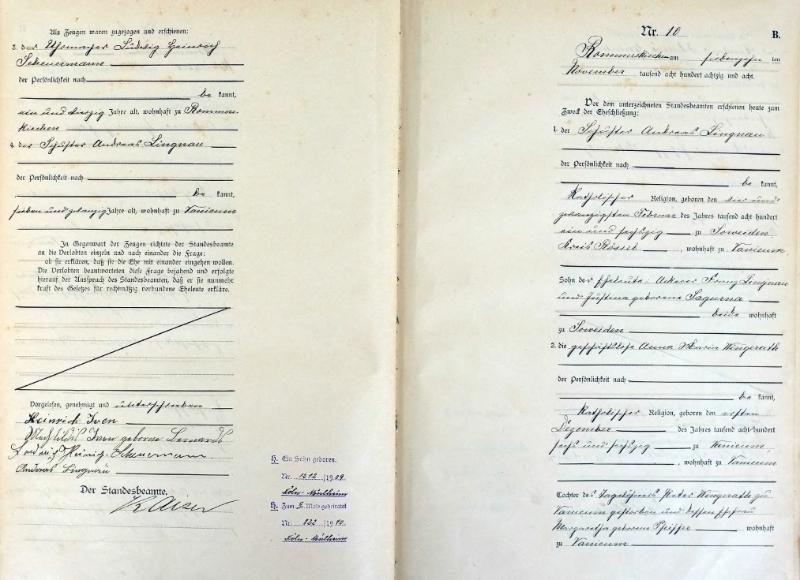 Als Zeugen waren zugezogen und erschienen:
3. der Uhrmacher Ludwig Heinrich
Scheuermann
der Persönlichkeit nach
be kannt,
ein und vierzig Jahre alt, wohnhaft zu Rommers-
kirchen
4. der Schuster Andreas Lingnau
der Persönlichkeit nach
be kannt,
sieben und zwanzig Jahre alt, wohnhaft zu Vanicum
In Gegenwart der Zeugen richtete der Standesbeamte
an die Verlobten einzeln und nach einander die Frage:
ob sie erklären, daß sie die Ehe mit einander eingehen wollen.
Die Verlobten beantworteten diese Frage bejahend und erfolgte
hierauf der Ausspruch des Standesbeamten, daß er sie nunmehr
kraft des Gesetzes für rechtmäßig verbundene Eheleute erkläre.
Vorgelesen, genehmigt und unterschrieben
Heinrich Iven
Iven geborne
Heinrich Scheuermann
Andreas Lingnau
Der Standesbeamte.
H. Ein Sohn geboren.
Nr. 1212 /1909
Köln-Mülheim
H. Zum 2. Mal geheiratet
Nr. 232 /19
Köln-Mülheim
Nr. 10
B.
Rommerskirchen am siebenzehnten
November tausend acht hundert achtzig und acht.
Vor dem unterzeichneten Standesbeamten erschienen heute zum
Zweck der Eheschließung:
1. der Schuster Andreas Lingnau
der Persönlichkeit nach
be kannt,
Katholischer Religion, geboren den vier und
zwanzigsten Februar des Jahres tausend acht hundert
ein und sechszig zu Soweiden
Kreis Rössel, wohnhaft zu Vanicum
Sohn der Eheleute Ackerer Franz Lingnau
und Justina geborene
beide wohnhaft
zu Soweiden
2. die geschäftslose Anna Maria Wingerath
der Persönlichkeit nach
be kannt,
Katholischer Religion, geboren den ersten
Dezember des Jahres tausend acht hundert
sechs und sechszig zu Vanicum
, wohnhaft zu Vanicum
Tochter des Tagelöhners Peter Wingerath zu
Vanicum gestorben und dessen Ehefrau
Margaretha geborene Pfeiffer wohnhaft
zu Vanicum